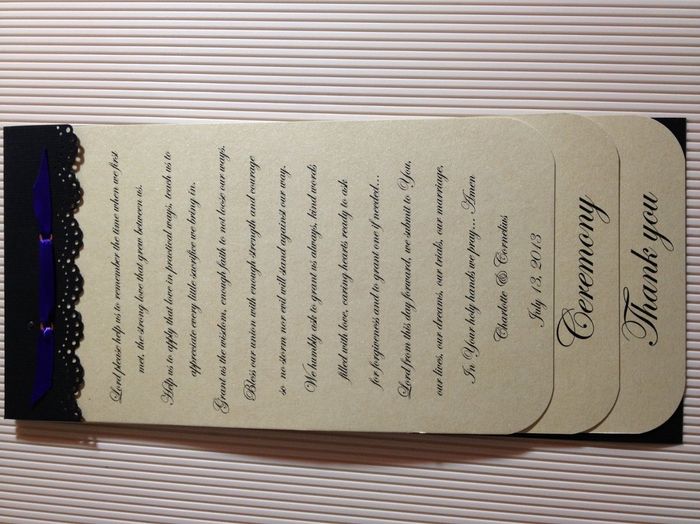 Lord please help us to remember the time when we first
met, the strong love that grew between us.
Help us to apply that love in practical ways, teach us to
appreciate every little sacrifice we bring in.
Grant us the wisdom, enough faith to not loose our ways.
Bless our union with enough strength and courage
so no storm nor evil will stand against our way.
We humbly ask to grant us always, kind words
filled with love, caring hearts ready to ask
for forgiveness and to grant one if needed...
Lord from this day forward, we submit to You,
our lives, our dreams, our trials, our marriage.
In Your holy hands we pray... Amen
Charlotte & Cornelius
July 13, 2013
Ceremony
Thank you